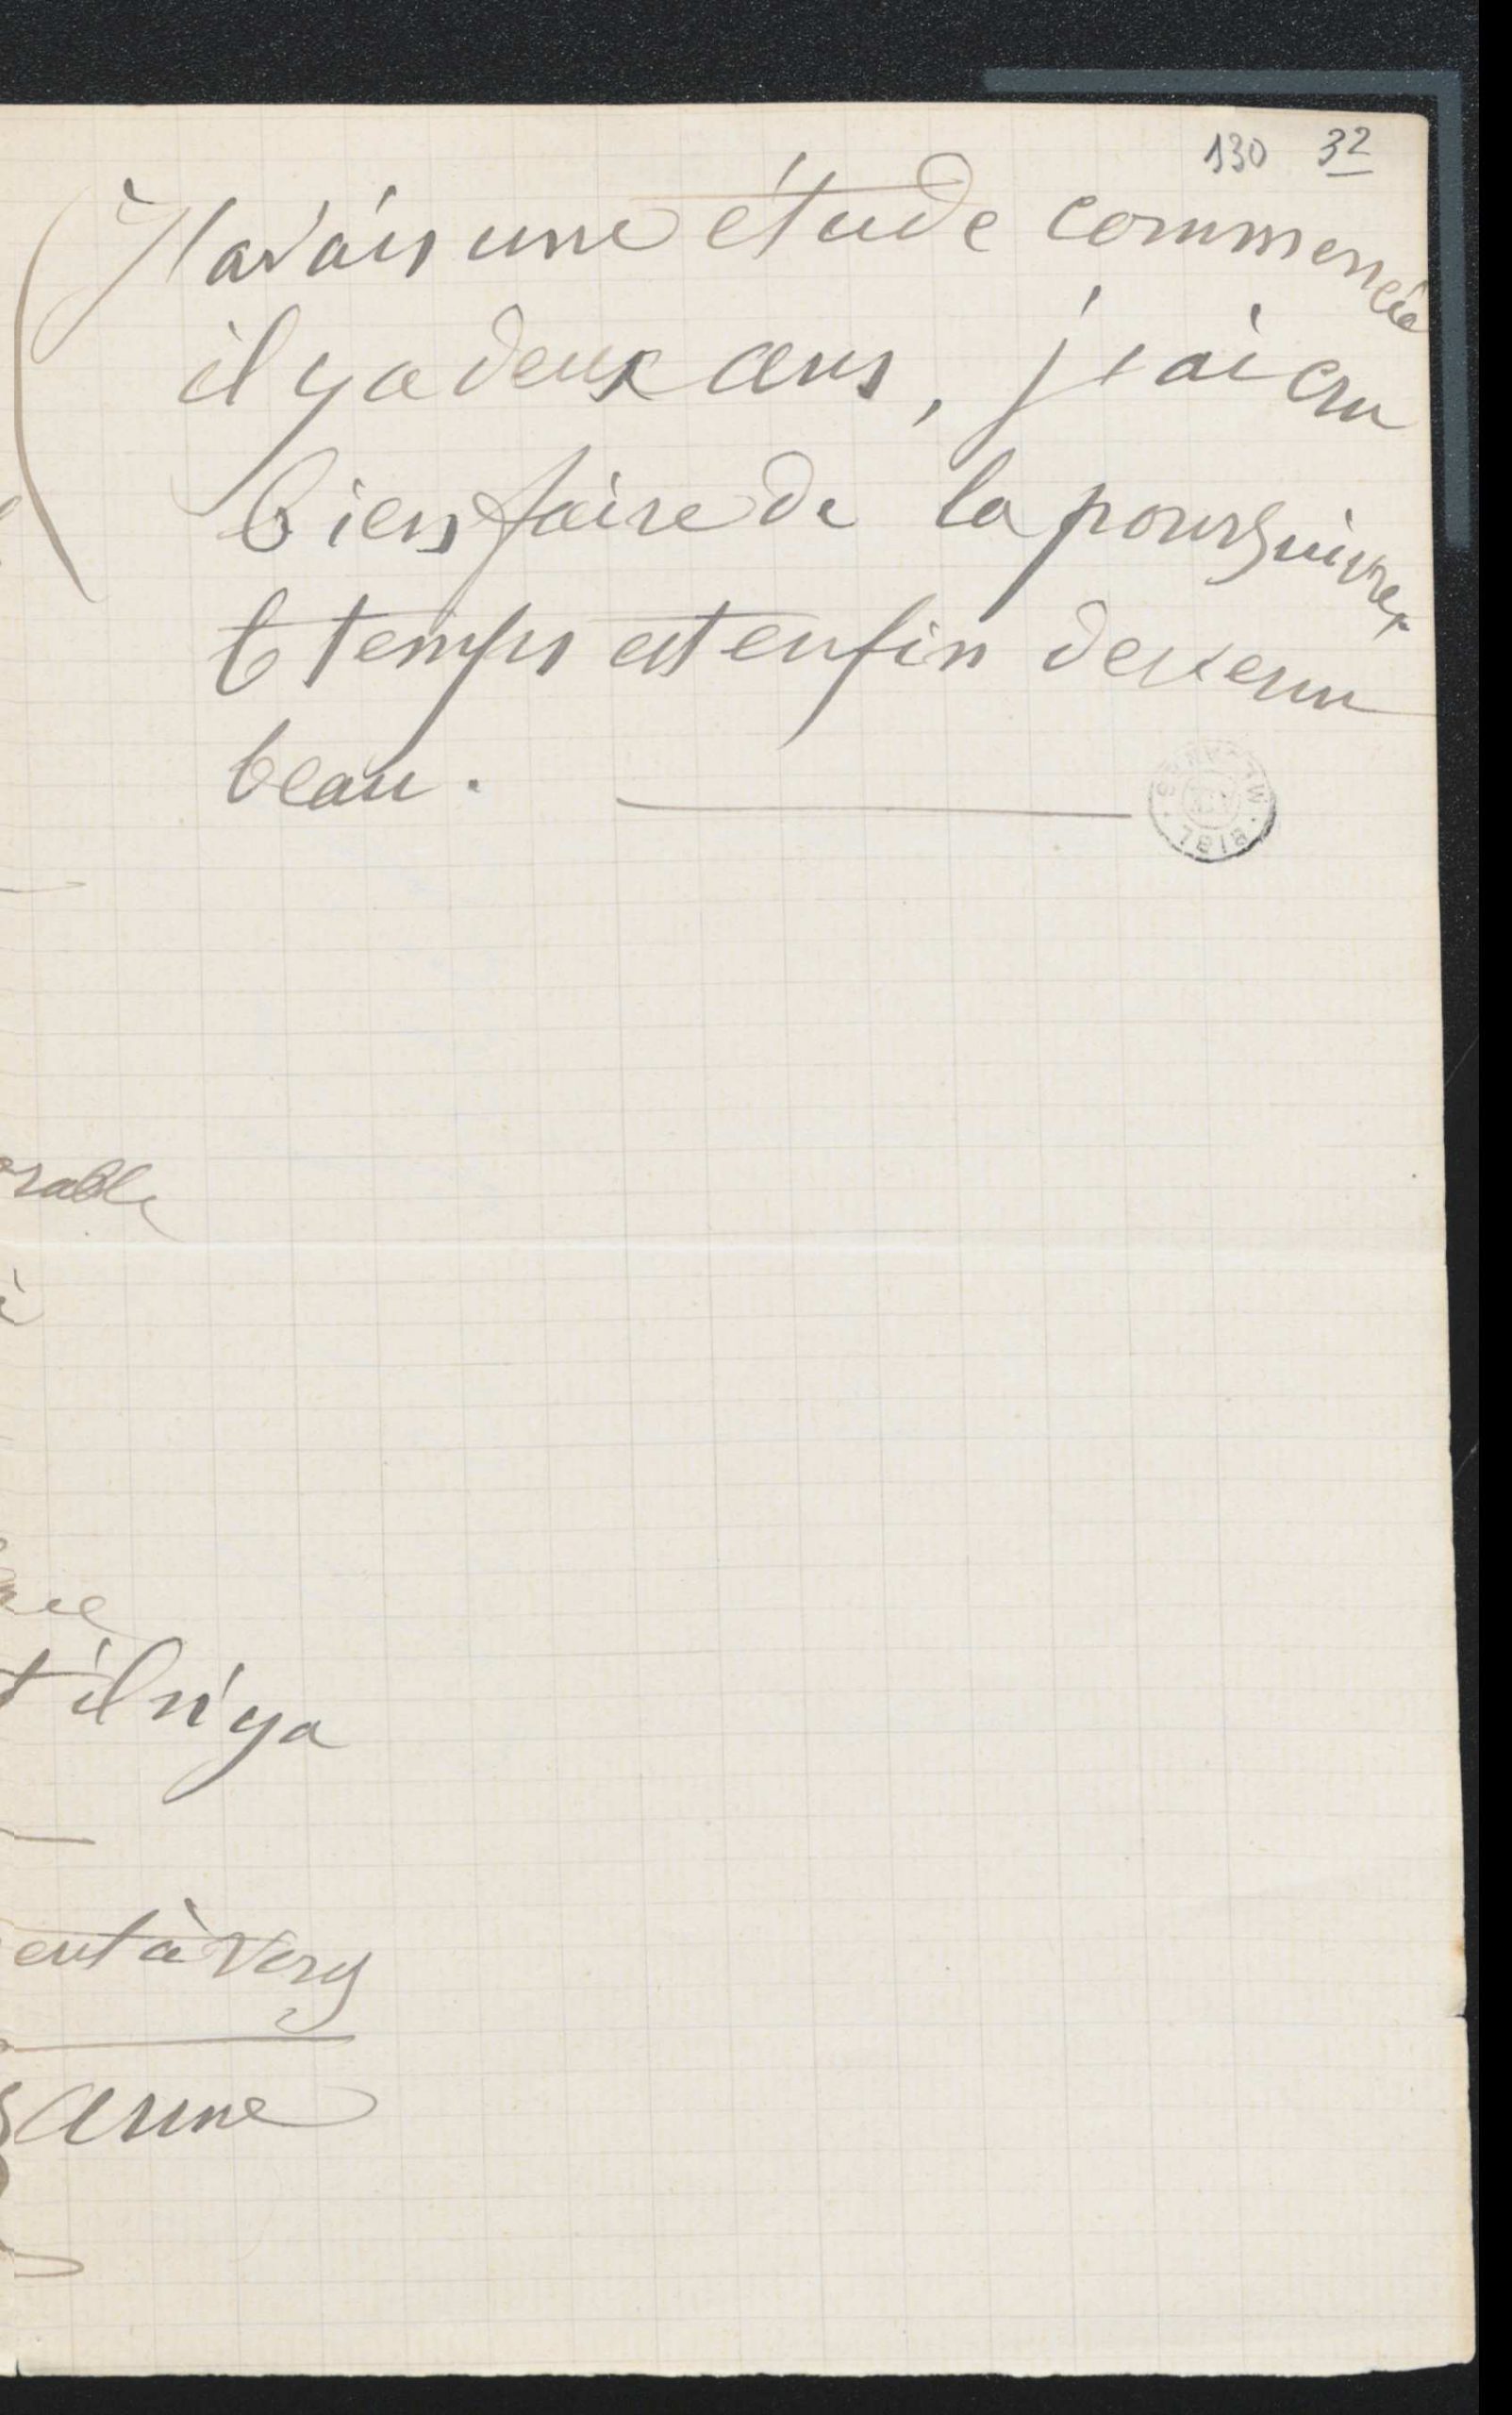 130 32
J'avais une étude commencée
il y a deux ans, j'ai cru
bien faire de la poursuivre.
le temps est enfin devenu
beau.
BIBL
rable
à
t il n'y a
ent à Very
anne